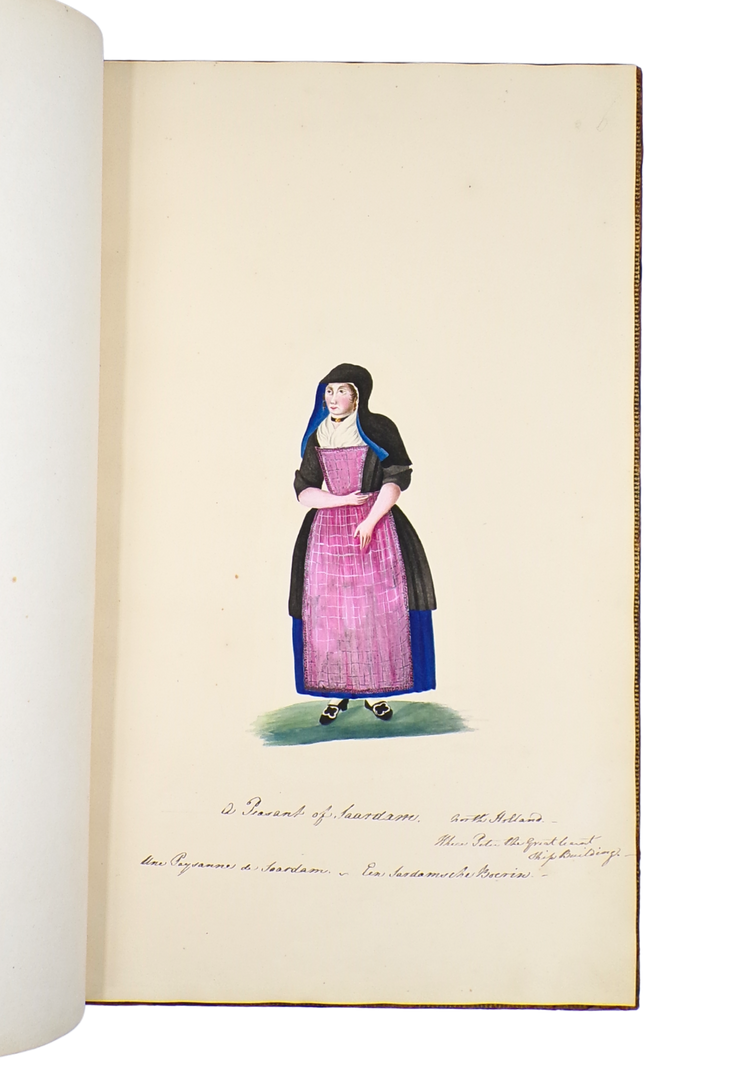 6
A Peasant of Saardam. North Holland –
Where Peter the Great learnt
Ship Building. –
Une Paysanne de Saardam. – Een Sardamsche Boerin. –